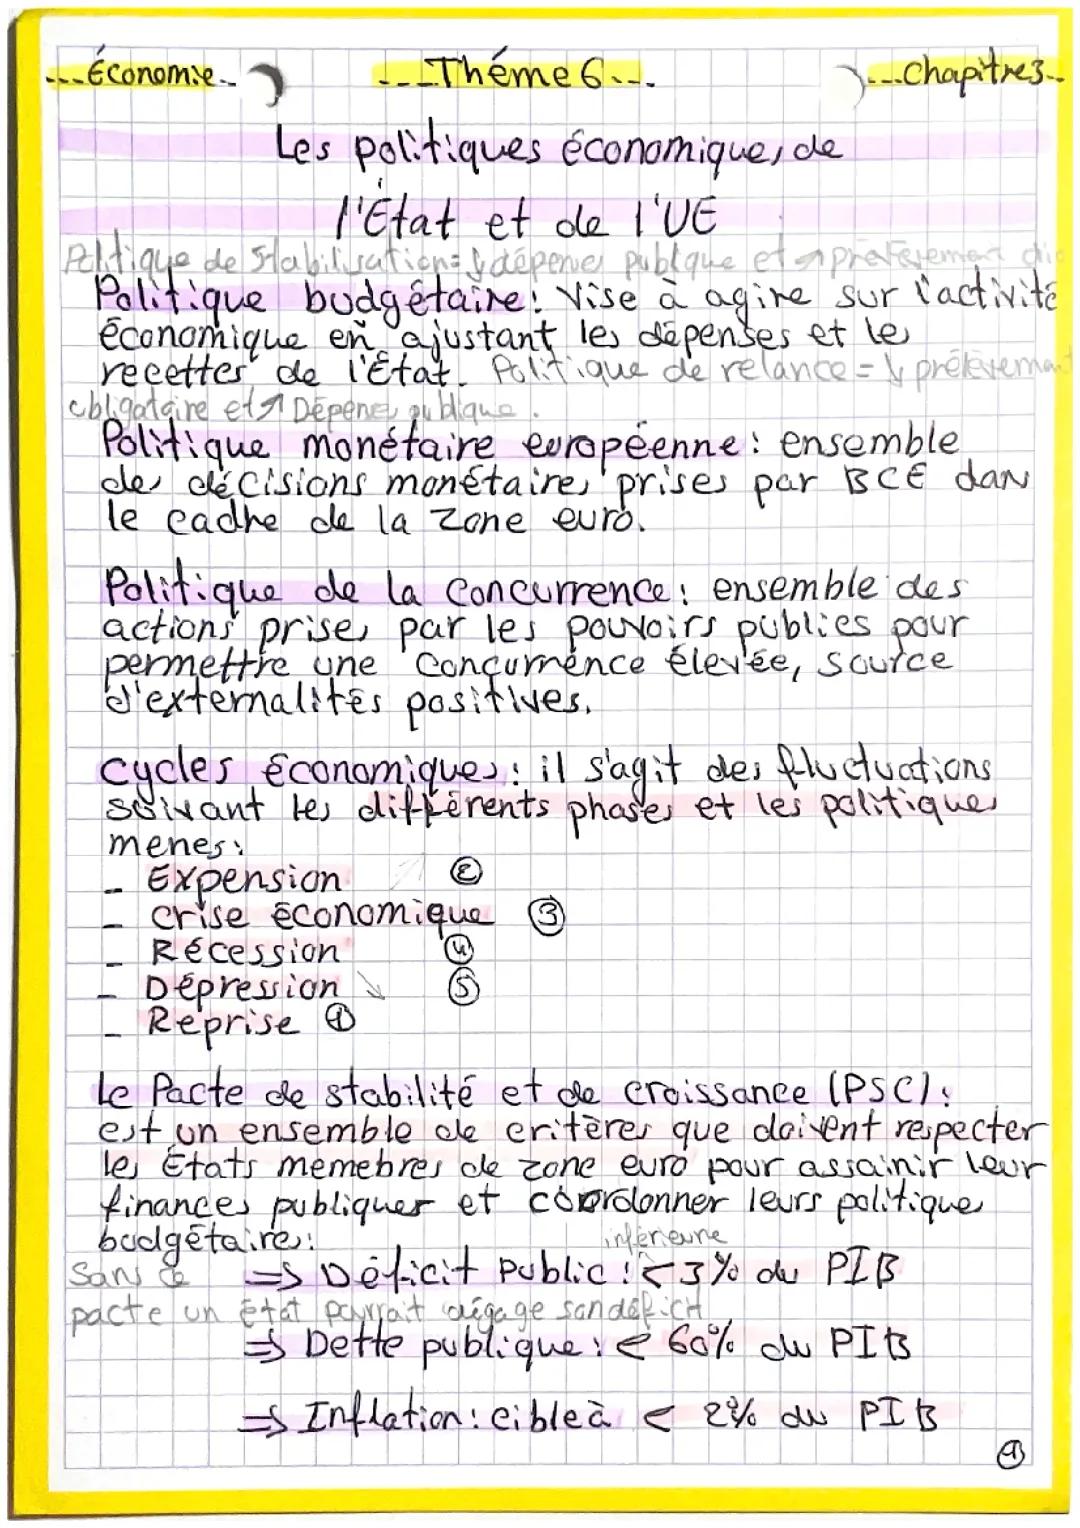 Économie
Théme 6
Chapitre3
Les politiques économiques de
l'État et de l'UE
Politique de Stabilisation = ↓ dépenes publique et ↗ prélèvement
Politique budgétaire : Vise à agire sur l'activité
économique en ajustant les dépenses et les
recettes de l'État. Politique de relance = ↓ prélèvement
obligataire et ↗ Dépenes publique.
Politique monétaire européenne : ensemble
des décisions monétaires prises par BCE dans
le cadre de la zone euro.
Politique de la concurrence : ensemble des
actions prises par les pouvoirs publics pour
permettre une concurrence élevée, source
d'externalités positives.
Cycles économiques : il s'agit des fluctuations
suivant les différents phases et les politiques
menes :
- Expension ②
- crise économique ③
- Récession ④
- Dépression ↘ ⑤
- Reprise ①
Le Pacte de stabilité et de croissance (PSC) :
est un ensemble de critères que doivent respecter
les États memebres de zone euro pour assainir leur
finances publiques et coordonner leurs politiques
budgétaires :
inférieure
Sans ce ⇒ Déficit Public : < 3% du PIB
pacte un état pourrait dégage son déficit
⇒ Dette publique : < 60% du PIB
⇒ Inflation : cible à < 2% du PIB
①